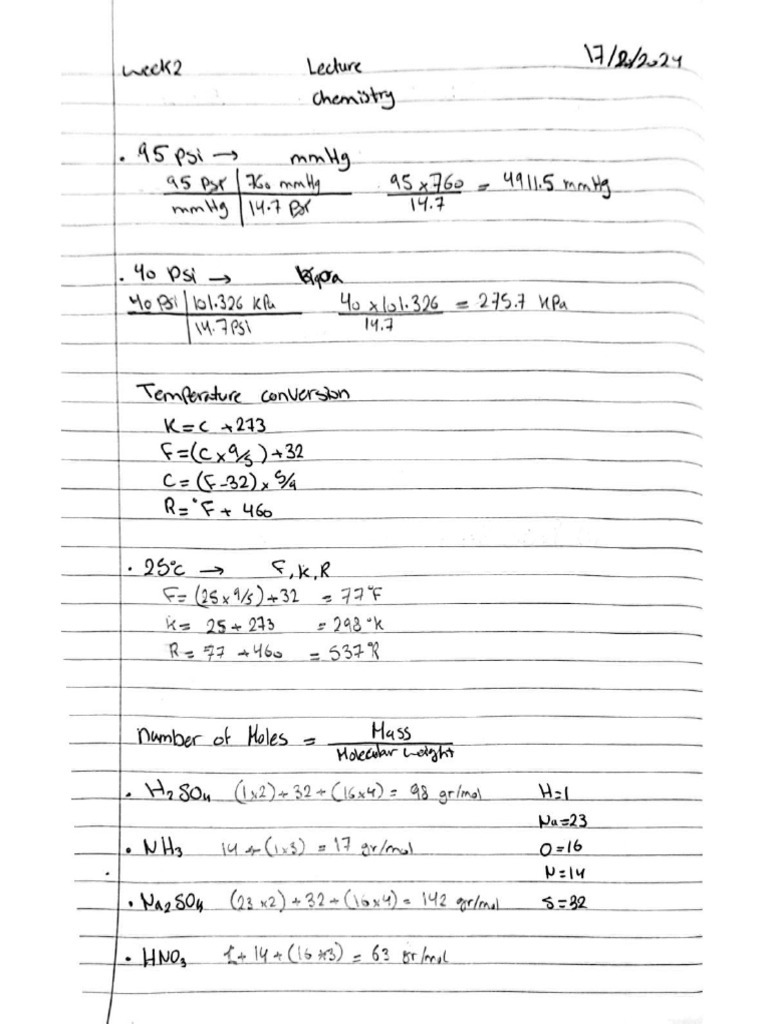 week2 Lecture 17/2/2024
chemistry
. 95 psi → mmHg
95 psi | 760 mmHg 95 x 760 = 4911.5 mmHg
mmHg | 14.7 psi 14.7
. 40 psi → kpa
40 psi | 101.326 kPa 40 x 101.326 = 275.7 kPa
14.7 psi 14.7
Temperature conversion
K = c + 273
F = (C x 9/5) + 32
C = (F - 32) x 5/9
R = °F + 460
. 25°c → F, K, R
F = (25 x 9/5) + 32 = 77°F
K = 25 + 273 = 298°K
R = 77 + 460 = 537°R
number of Moles = Mass
Molecular weight
. H2SO4 (1x2) + 32 + (16x4) = 98 gr/mol H=1
Na=23
. NH3 14 + (1x3) = 17 gr/mol O=16
N=14
. Na2SO4 (23x2) + 32 + (16x4) = 142 gr/mol S=32
. HNO3 1 + 14 + (16x3) = 63 gr/mol